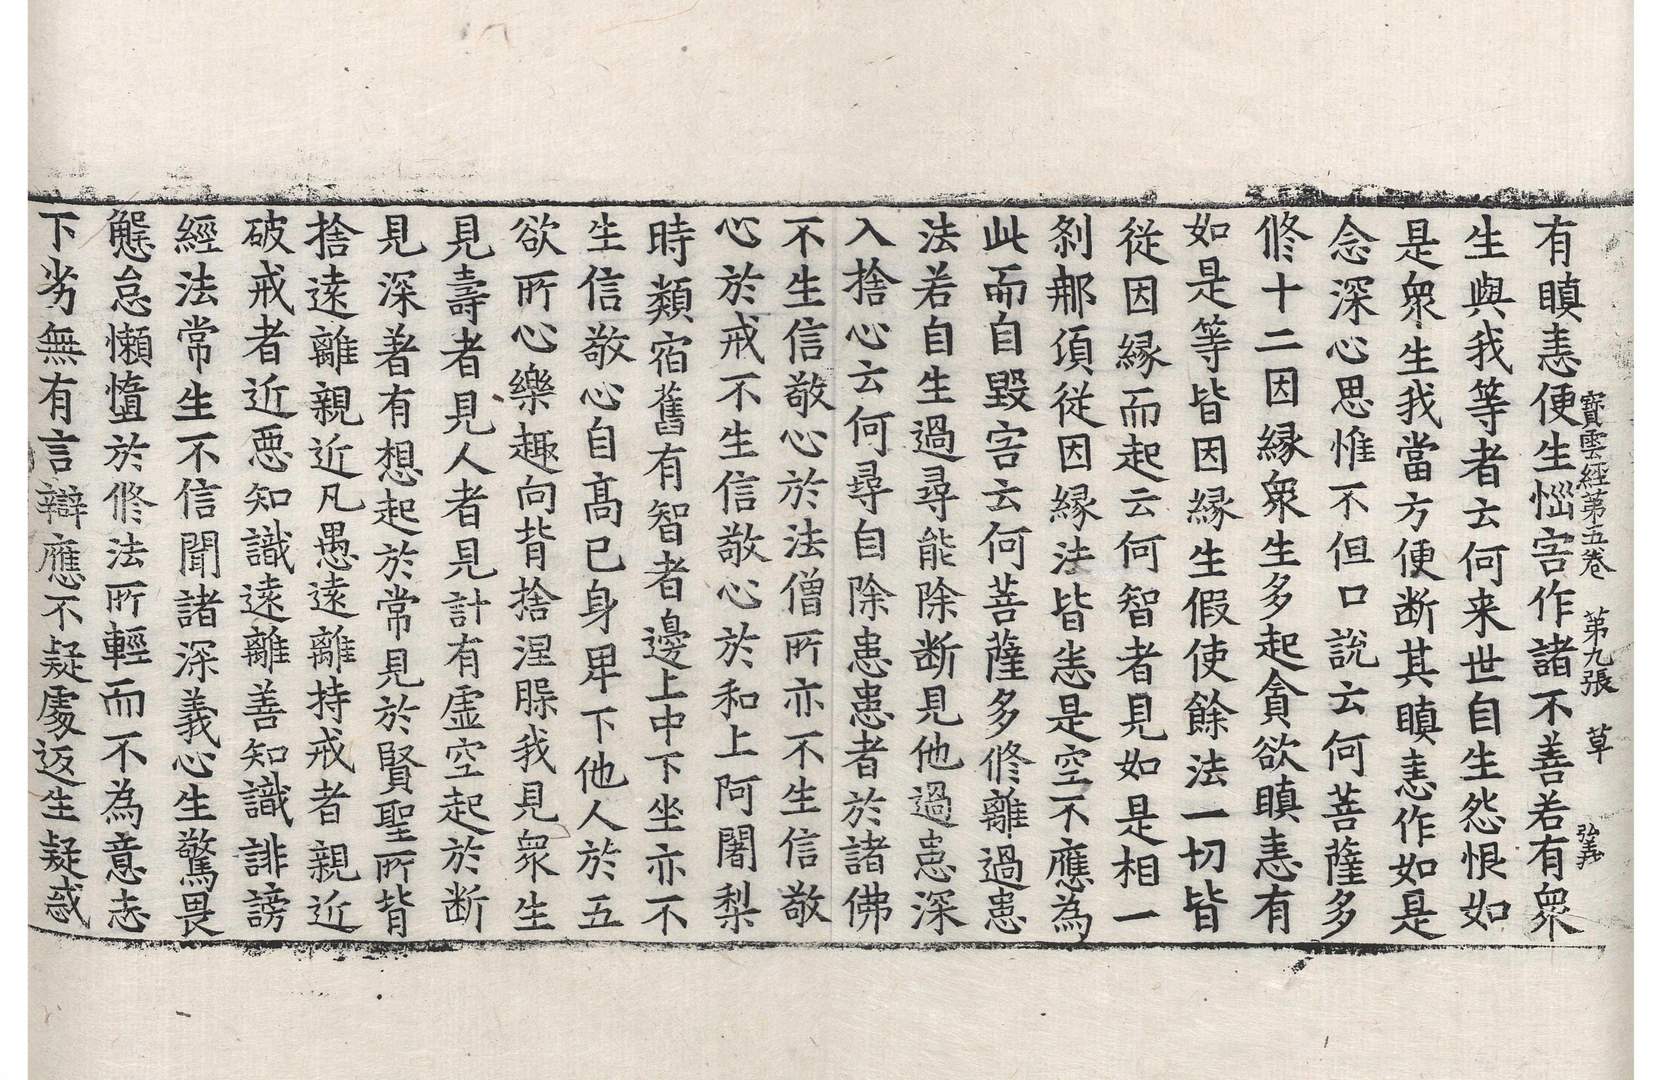 寶雲經第五卷　第九張　草　弘義
有瞋恚便生惱害作諸不善若有衆
生與我等者云何来世自生怨恨如
是衆生我當方便断其瞋恚作如是
念深心思惟不但口說云何菩薩多
修十二因縁衆生多起貪欲瞋恚有
如是等皆因縁生假使餘法一切皆
從因縁而起云何智者見如是相一
刹那須從因縁法皆悉是空不應為
此而自毀害云何菩薩多修離過患
法若自生過尋能除断見他過患深
入捨心云何尋自除患患者於諸佛
不生信敬心於法僧所亦不生信敬
心於戒不生信敬心於和上阿闍梨
時類宿舊有智者邊上中下坐亦不
生信敬心自高已身卑下他人於五
欲所心樂趣向背捨涅躁我見衆生
見壽者見人者見計有虚空起於断
見深著有想起於常見於賢聖所背
捨遠離親近凡愚遠離持戒者親近
破戒者近惡知識遠離善知識誹謗
經法常生不信聞諸深義心生驚畏
懈怠懶憜於修法所輕而不為意志
下劣無有言辯應不疑處返生疑惑